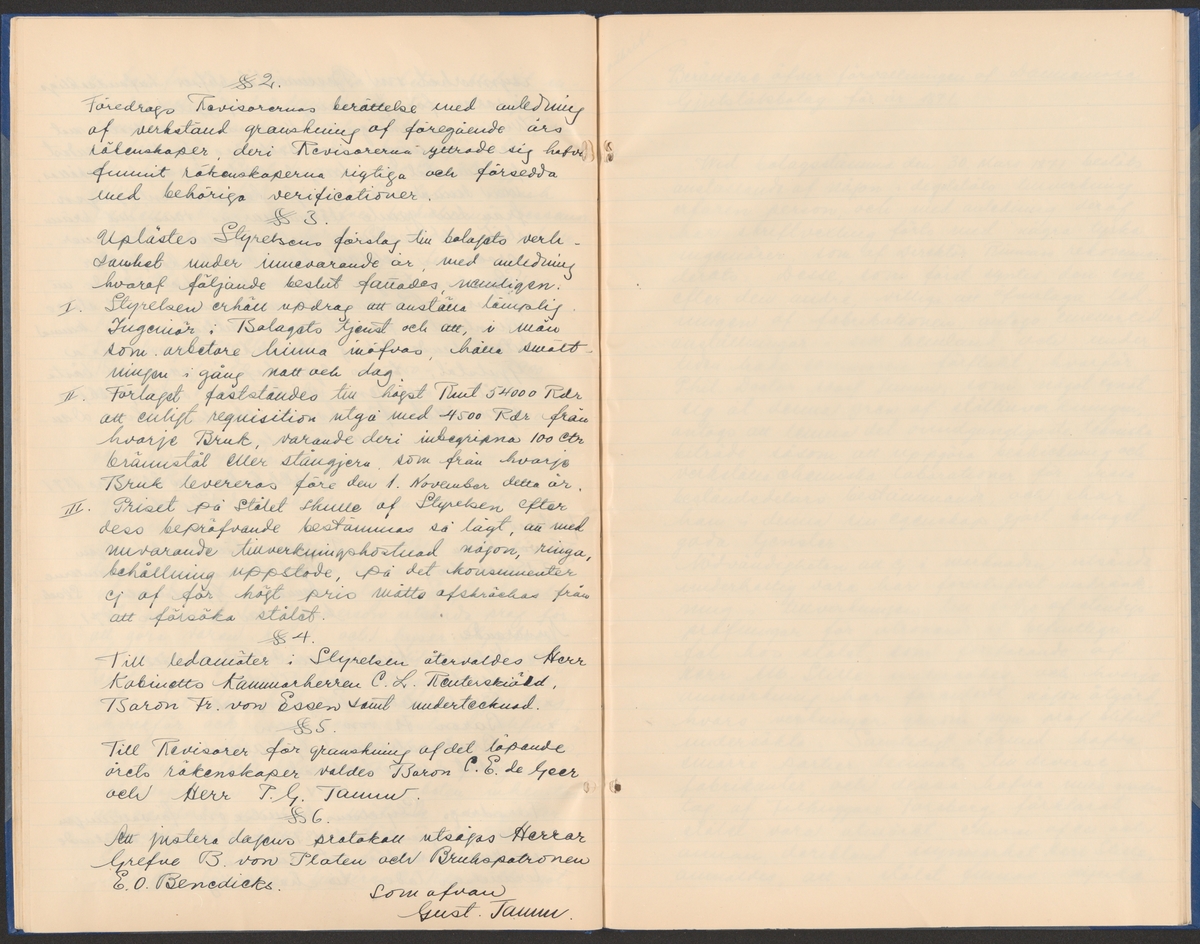 § 2.
Föredrogs Revisorernas berättelse med anledning
af verkställd granskning af föregående års
räkenskaper, deri Revisorerna yttrade sig hafva
funnit räkenskaperna rigtiga och försedda
med behöriga verificationer.
§ 3.
Uplästes Styrelsens förslag till bolagets verk-
samhet under innevarande år, med anledning
hvaraf följande beslut fattades, nemligen:
I. Styrelsen erhöll updrag att anställa lämplig
Ingeniör i Bolagets tjenst och att, i mån
som arbetare hinna inöfvas, hålla smält-
ningen i gång natt och dag.
II. Förlaget fastställdes till högst Rmt 54000 Rdr
att enligt requisition utgå med 4500 Rdr från
hvarje Bruk, varande deri inbegripna 100 Ctr
brännstål eller stångjern, som från hvarje
Bruk levereras före den 1. November detta år.
III. Priset på Stålet skulle af Styrelsen efter
dess bepröfvande bestämmas så lågt, att med
nuvarande tillverkningskostnad någon, ringa,
behållning uppstode, på det konsumenter
ej af för högt pris måtte afskräckas från
att försöka stålet.
§ 4.
Till ledamöter i Styrelsen återvaldes Herr
Kabinetts Kammarherren C. L. Reuterskiöld,
Baron Fr. von Essen samt undertecknad.
§ 5.
Till Revisorer för granskning af det löpande
årets räkenskaper valdes Baron C. E. de Geer
och Herr P. G. Tamm.
§ 6.
Att justera dagens protokoll utsågos Herrar
Grefve B. von Platen och Brukspatronen
E. O. Benedicks.
Som ofvan
Gust. Tamm.